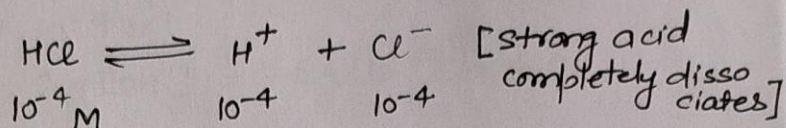 HCl ⇌ H⁺ + Cl⁻ [strong acid
completely disso
ciates]
10⁻⁴ M 10⁻⁴ 10⁻⁴